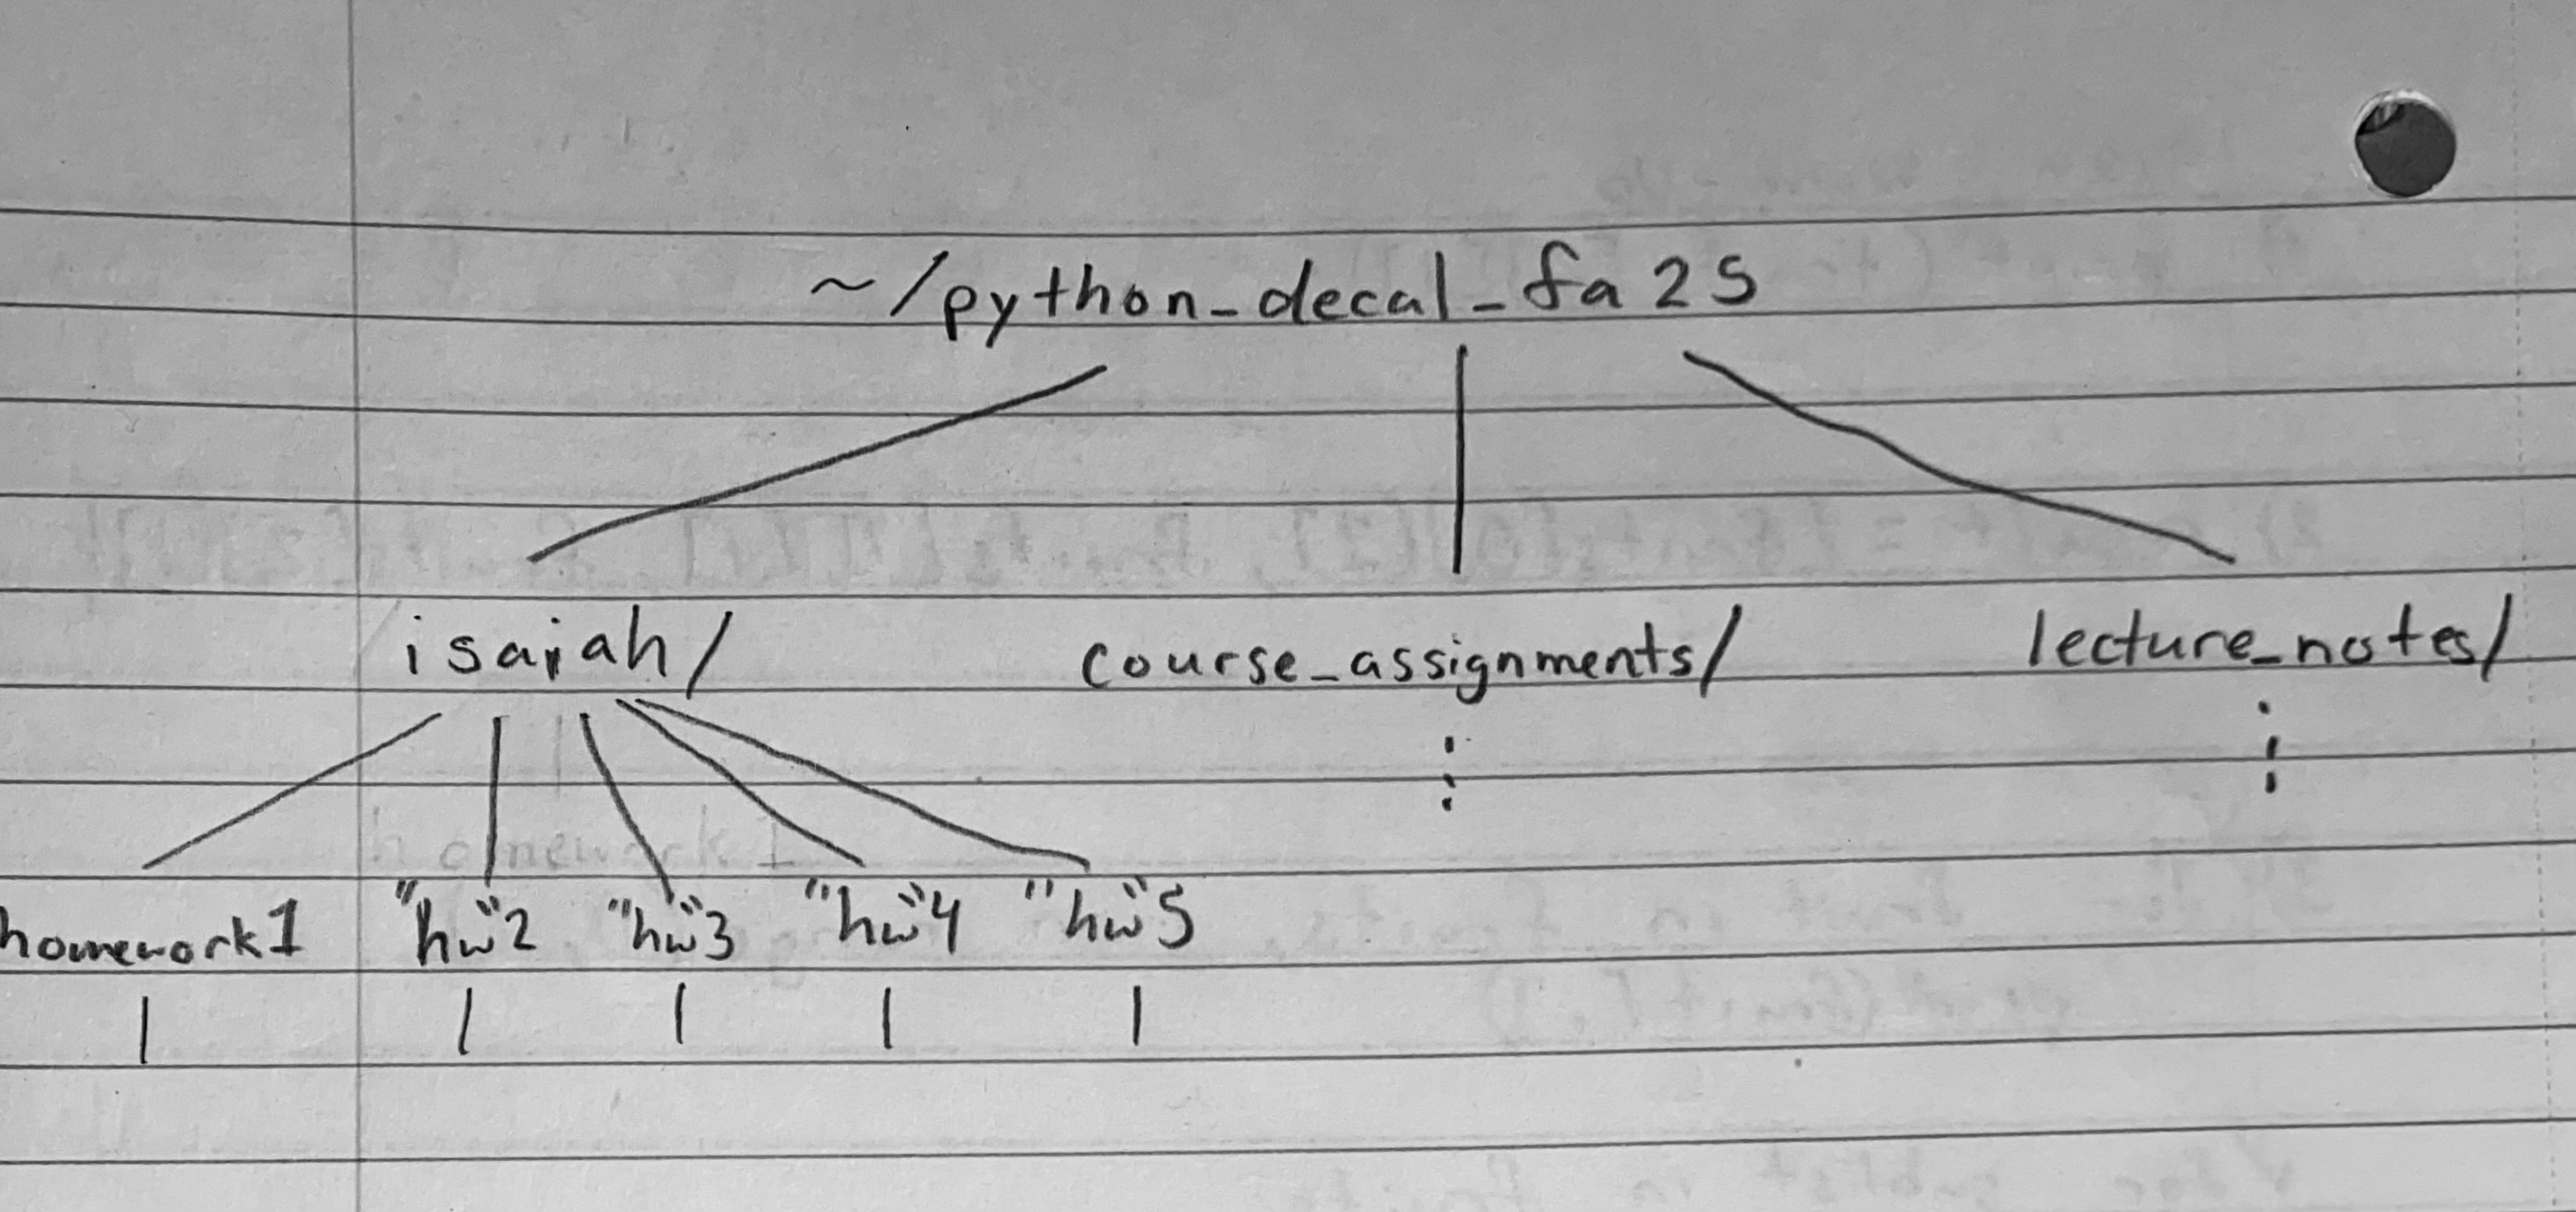 ~/python_decal_fa25
isaiah/ course_assignments/ lecture_notes/
homework1 "hw"2 "hw"3 "hw"4 "hw"5